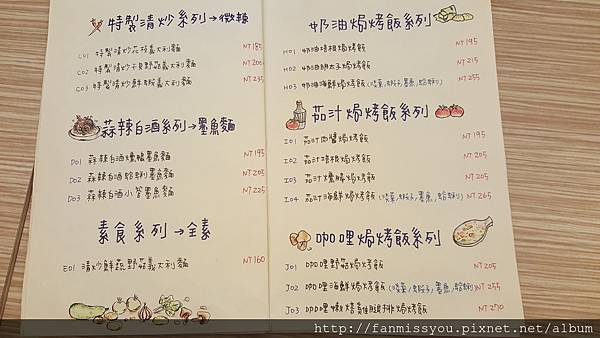 特製清炒系列→微辣
C01 特製清炒花枝義大利麵 NT 185
C02 特製清炒干貝野菇義大利麵 NT 200
C03 特製清炒鮮蝦義大利麵 NT 235
蒜辣白酒系列→墨魚麵
D01 蒜辣白酒燻鴨墨魚麵 NT 195
D02 蒜辣白酒蛤蜊墨魚麵 NT 205
D03 蒜辣白酒小管墨魚麵 NT 225
素食系列→全素
E01 清炒鮮蔬野菇義大利麵 NT 160
奶油焗烤飯系列
H01 奶油培根焗烤飯 NT 195
H02 奶油明太子焗烤飯 NT 215
H03 奶油海鮮焗烤飯(淡菜,蝦子,墨魚,蛤蜊) NT 255
茄汁焗烤飯系列
I01 茄汁肉醬焗烤飯 NT 195
I02 茄汁培根焗烤飯 NT 205
I03 茄汁燻腸焗烤飯 NT 205
I04 茄汁海鮮焗烤飯(淡菜,蝦子,墨魚,蛤蜊) NT 265
咖哩焗烤飯系列
J01 咖哩野菇焗烤飯 NT 205
J02 咖哩海鮮焗烤飯(淡菜,蝦子,墨魚,蛤蜊) NT 255
J03 咖哩嫩煎雞腿排焗烤飯 NT 270
http://fanmissyou.pixnet.net/album